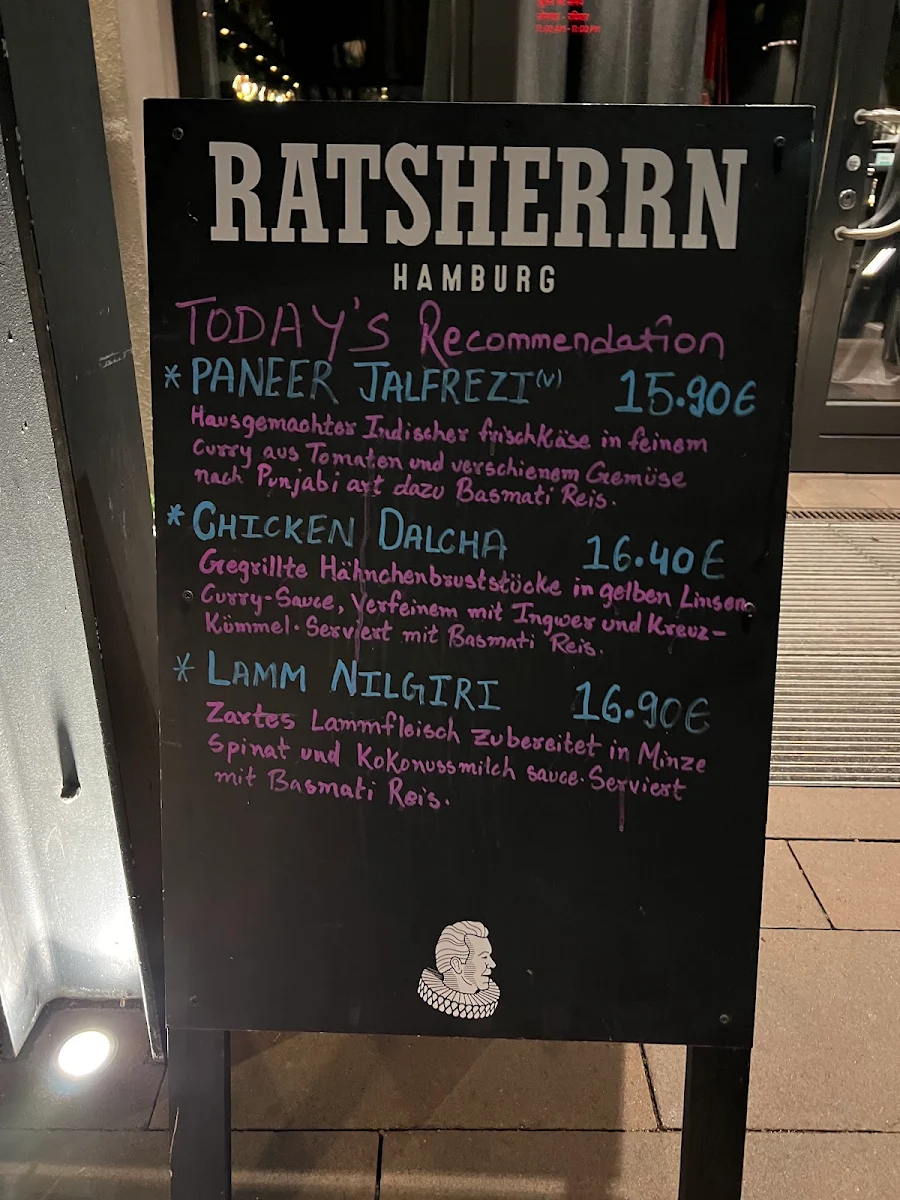 11:00 AM - 11:00 PM
RATSHERRN
HAMBURG
TODAY'S Recommendation
* PANEER JALFREZI (V) 15.90€
Hausgemachter Indischer frischKäse in feinem
Curry aus Tomaten und verschienem Gemüse
nach Punjabi art dazu Basmati Reis.
* CHICKEN DALCHA 16.40€
Gegrillte Hähnchenbruststücke in gelben Linsen
Curry-Sauce, Verfeinem mit Ingwer und Kreuz-
Kümmel. Serviert mit Basmati Reis.
* LAMM NILGIRI 16.90€
Zartes Lammfleisch Zubereitet in Minze
Spinat und Kokonussmilch sauce. Serviert
mit Basmati Reis.